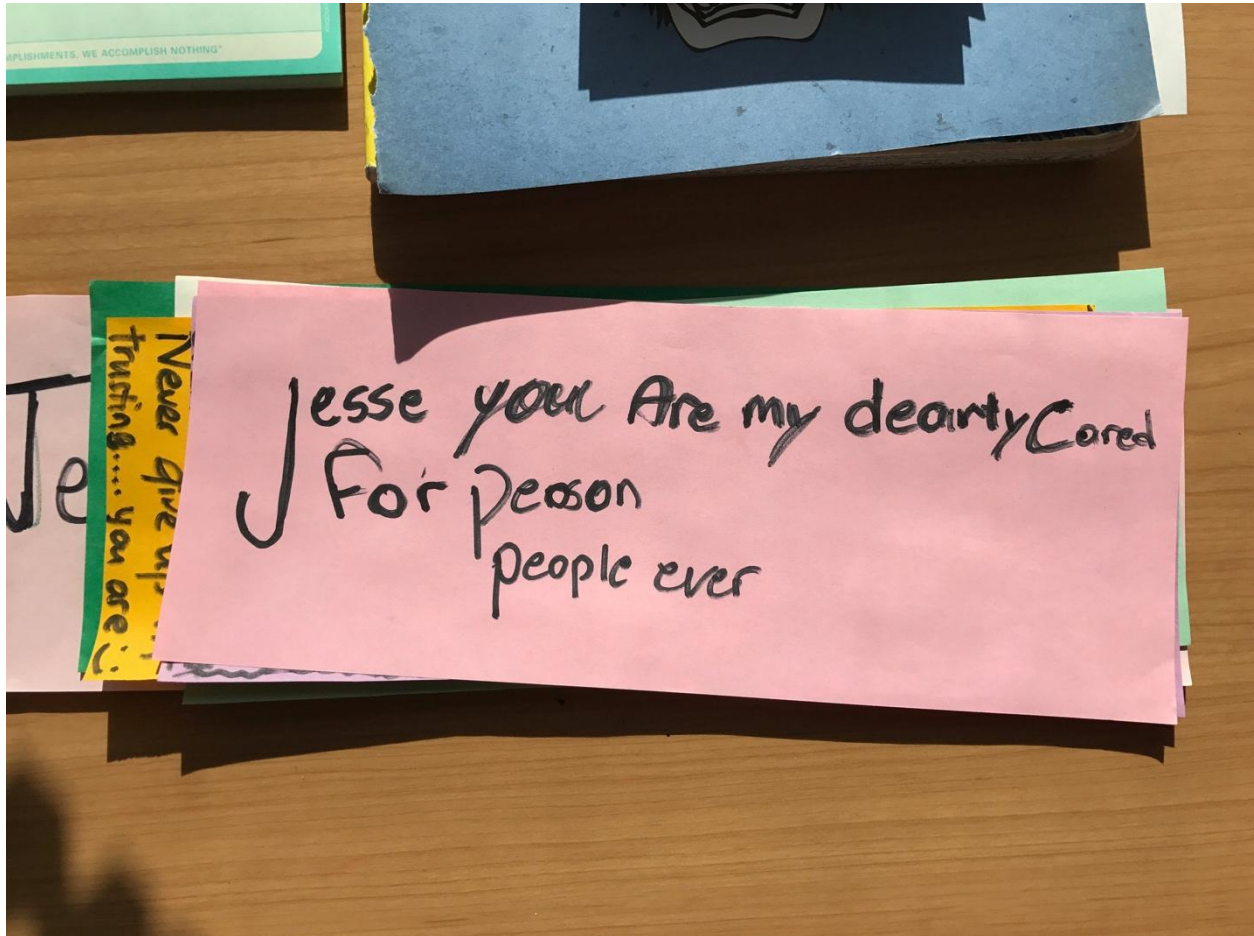 MPLISHMENTS, WE ACCOMPLISH NOTHING"
Je
Never give up
trusting..... you are :)
Jesse your Are my dearly Cared
For peoson
people ever